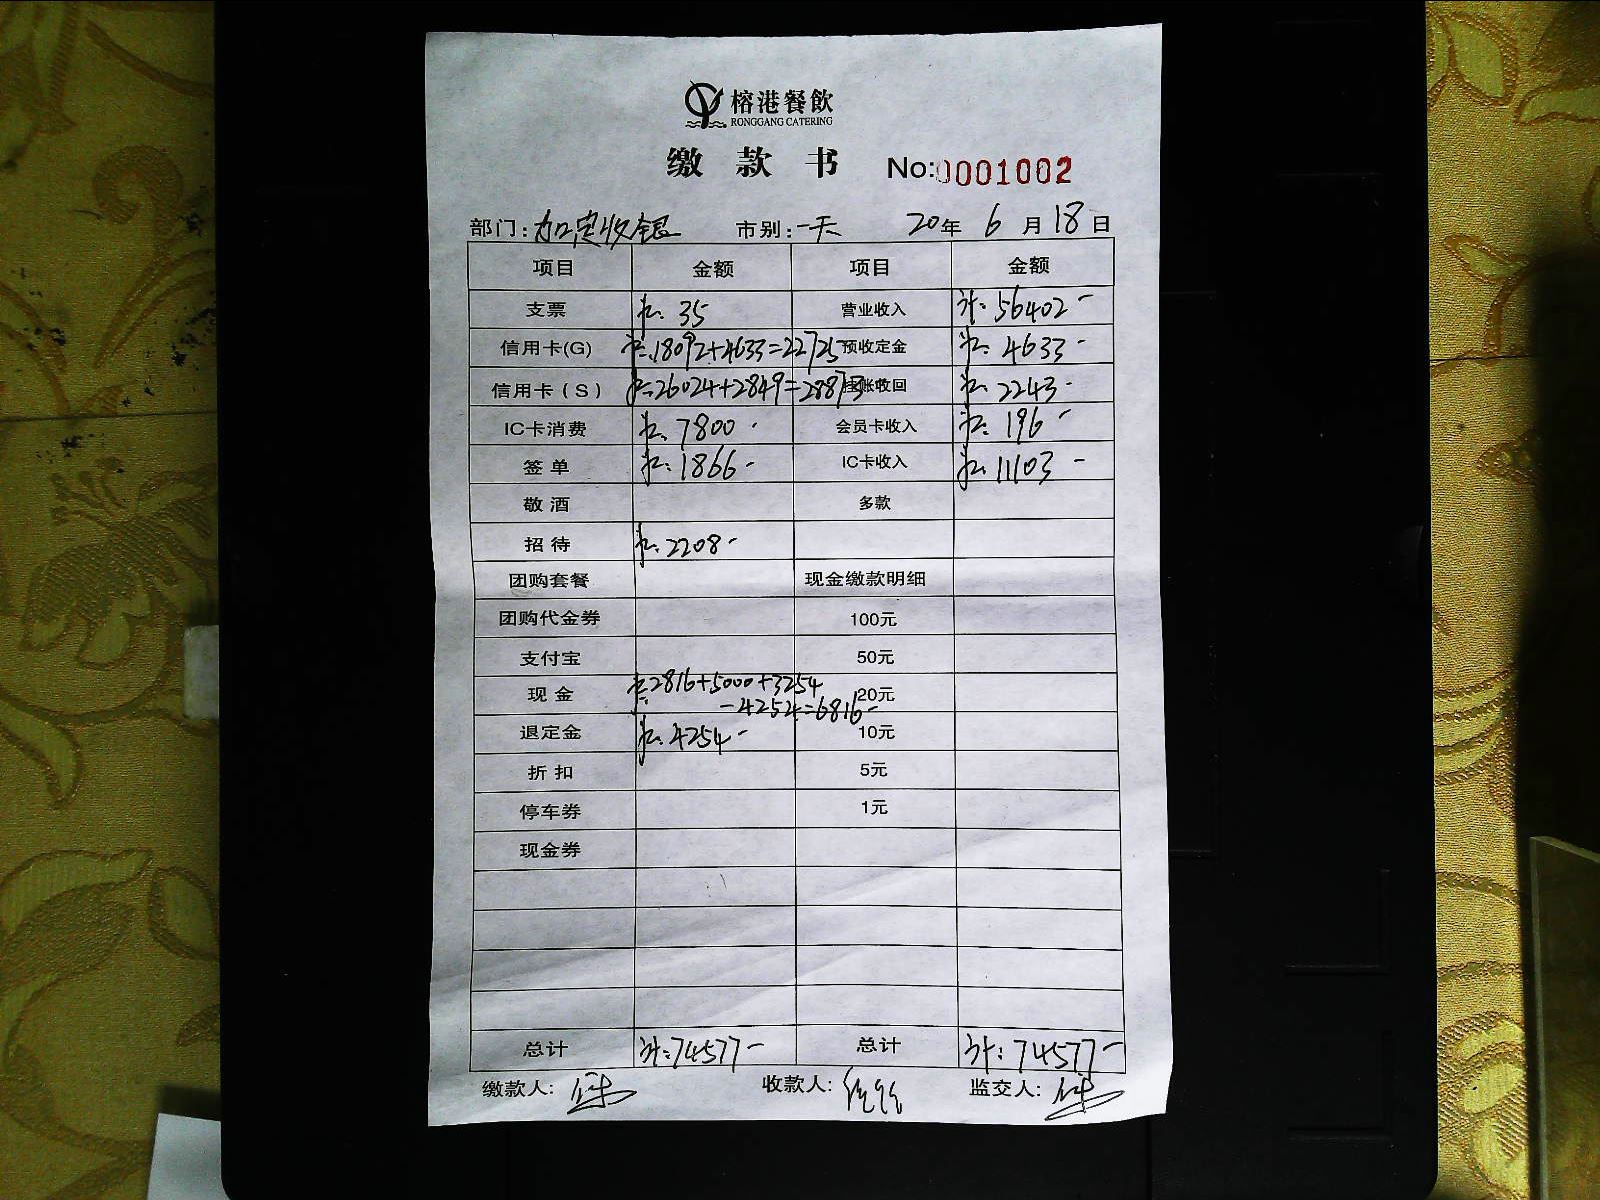 榕港餐飲
RONGGANG CATERING
缴 款 书 No:0001002
部门: 加定收银 市别: 一天 20年 6月18日
项目 金额 项目 金额
支票 35 营业收入 计: 56402-
信用卡(G) 18092+4633=22725 预收定金 4633-
信用卡(S) 26024+2849=28873 挂账收回 2243-
IC卡消费 7800- 会员卡收入 196-
签单 1866- IC卡收入 11103-
敬酒 多款
招待 2208-
团购套餐 现金缴款明细
团购代金券 100元
支付宝 50元
现金 2816+5000+3254 20元
-4254=6816-
退定金 4254- 10元
折扣 5元
停车券 1元
现金券
总计 计:74577- 总计 计:74577-
缴款人: 收款人: 监交人: